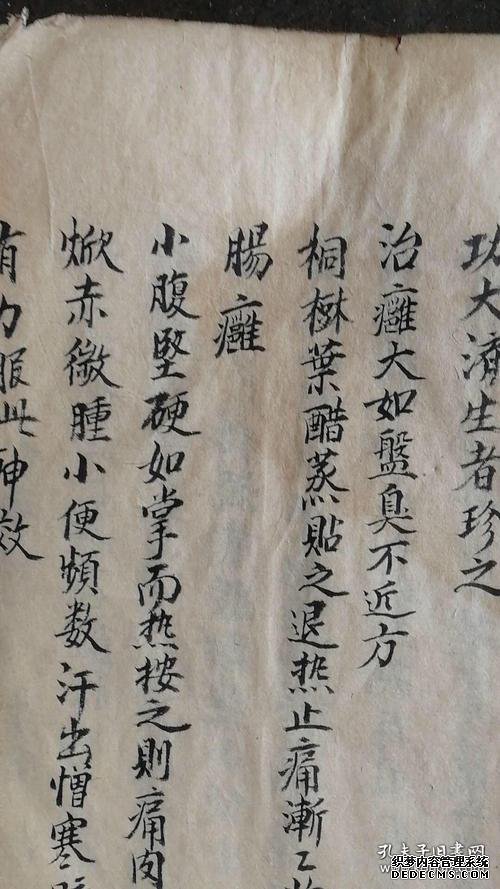 功大濟生者珍之
治癰大如盤臭不近方
桐樹葉醋蒸貼之退热止痛漸〻
腸癰
小腹堅硬如掌而热按之則痛肉
焮赤微腫小便頻数汗出憎寒脉
有力服此神效
孔夫子旧書网
织梦内容管理系统
DEDECMS.COM